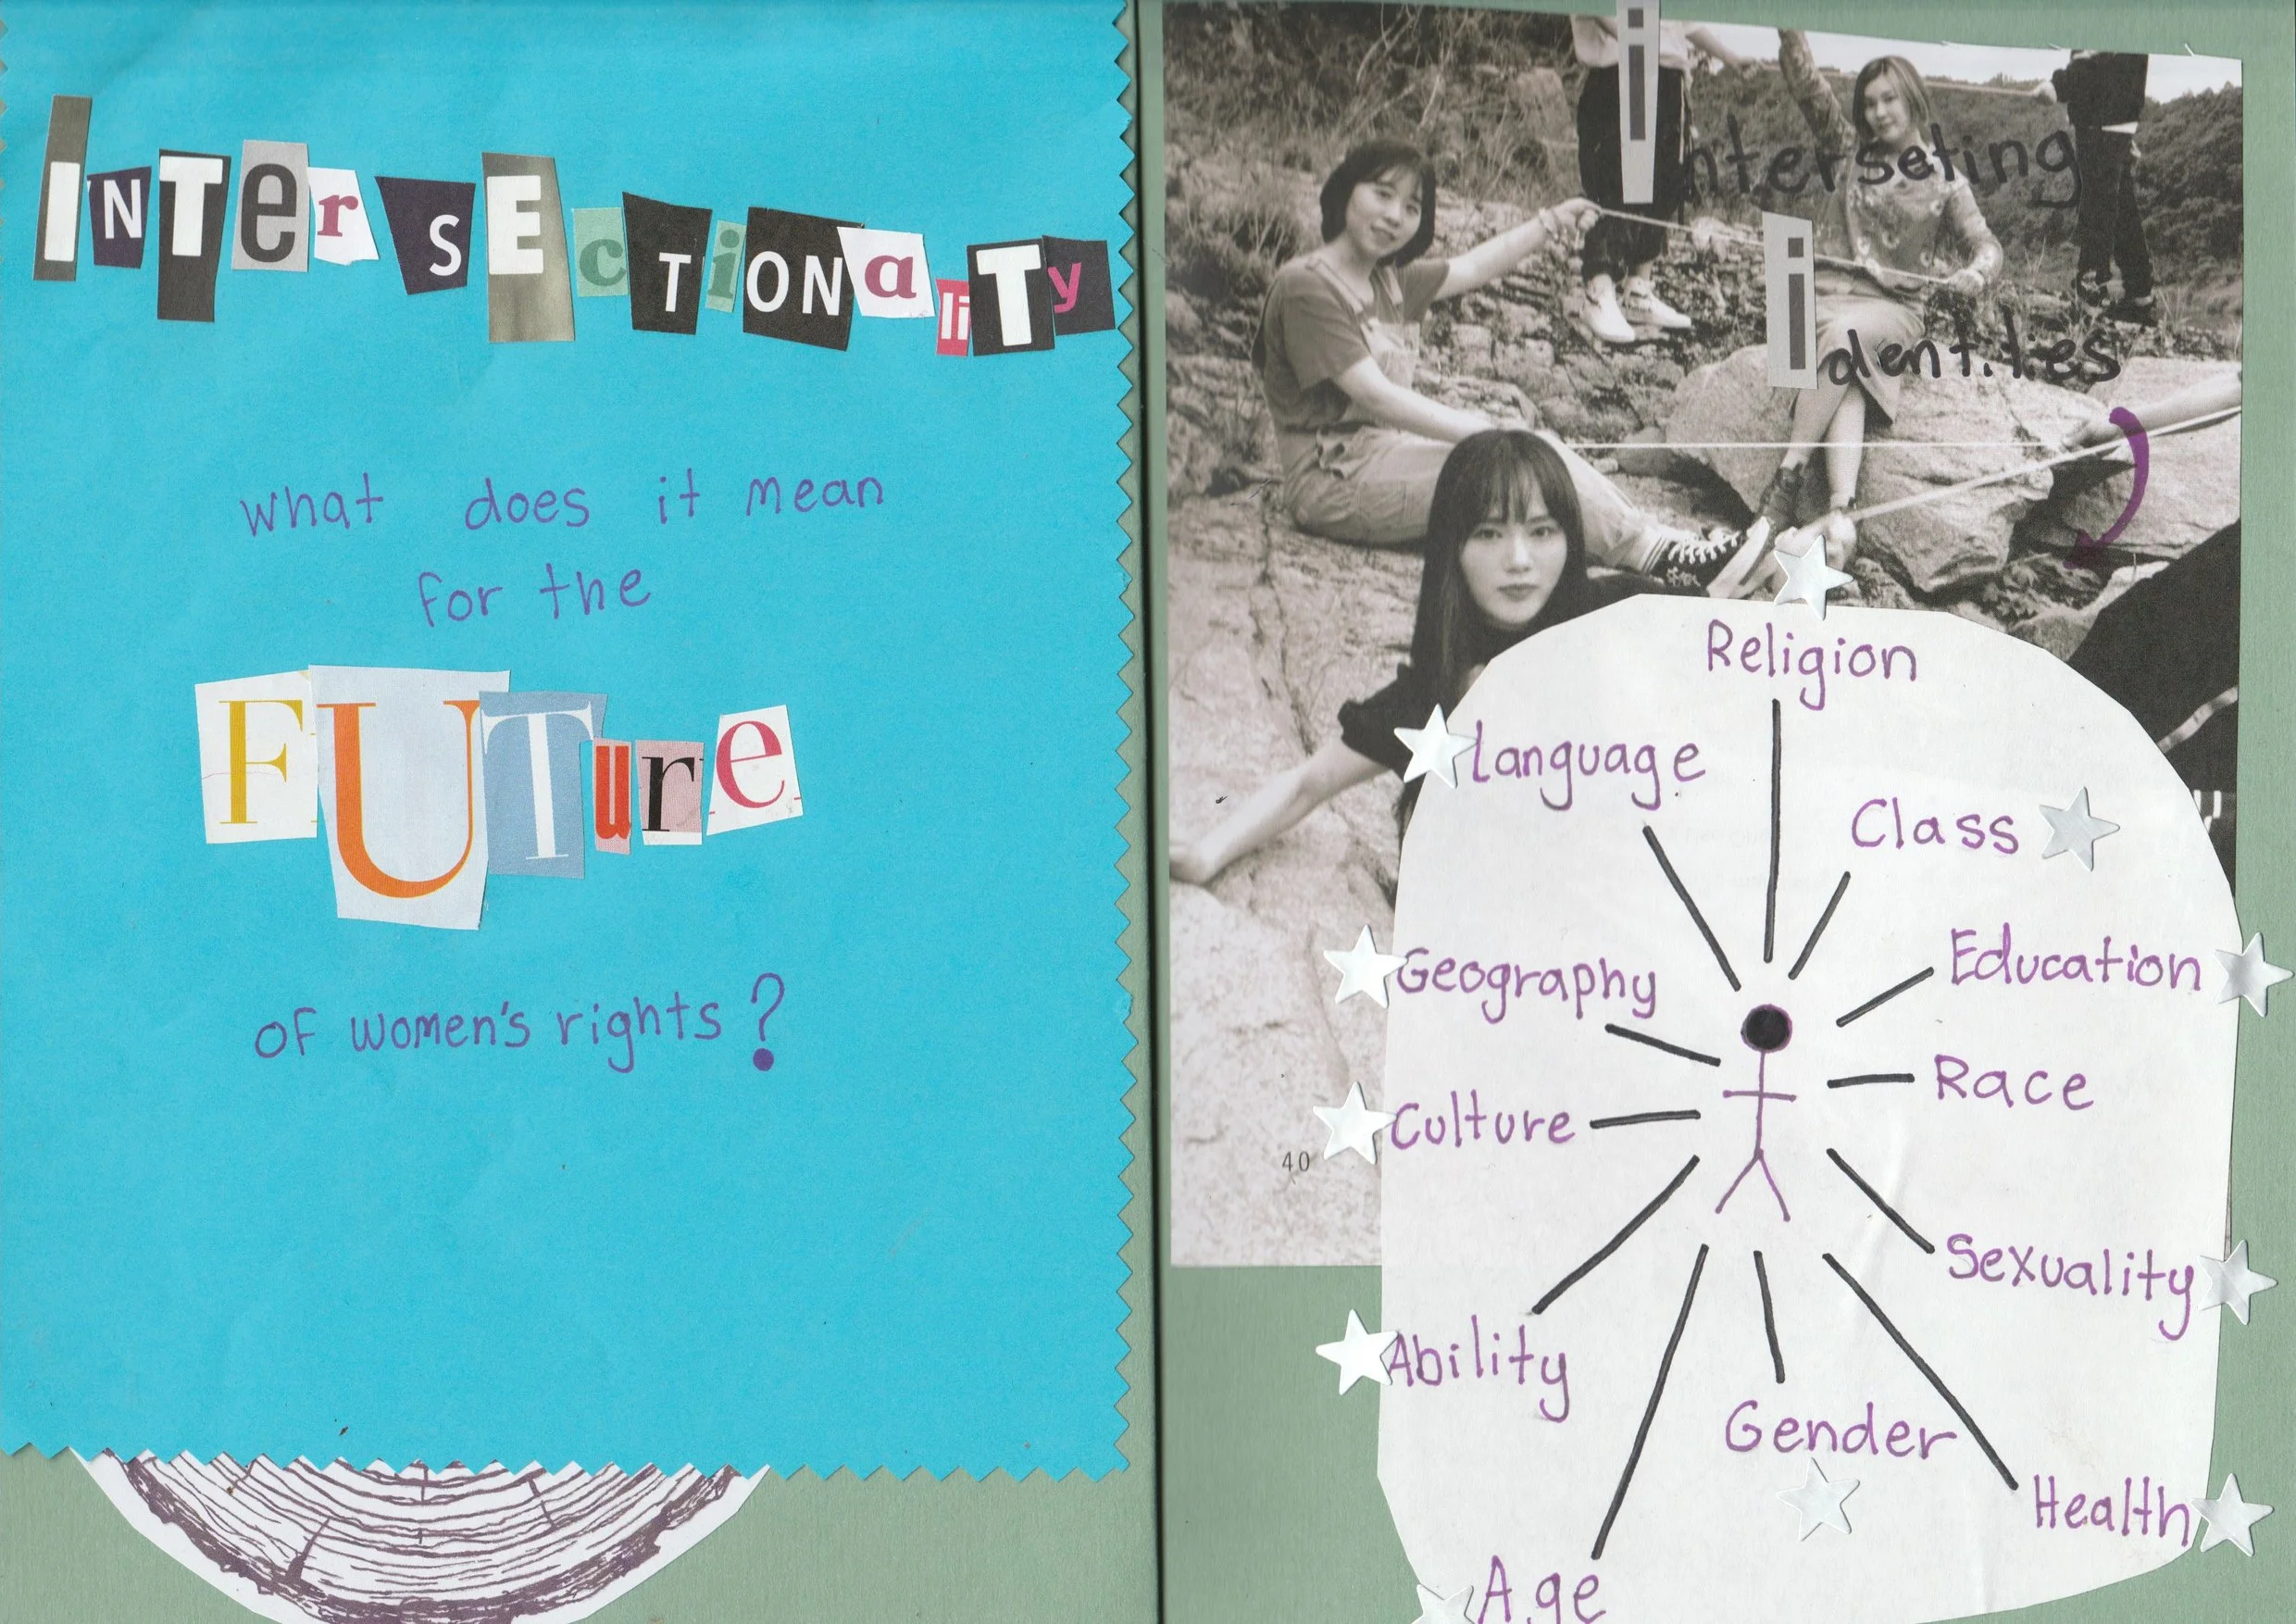 INTerSEcTiONaliTy
what does it mean
for the
FUTure
of women's rights?
interseting
identities
Religion
Language
Class
Geography
Education
Race
Culture
Sexuality
Ability
Gender
Health
Age
40